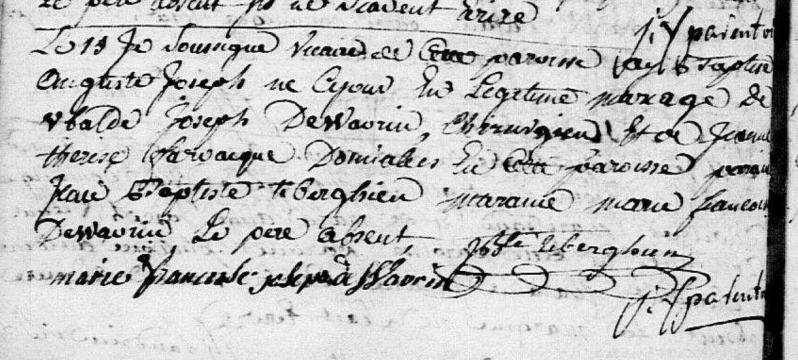 le pere absent ils ne scavent ecrire
j. f parent
Le 15 Je Soussigne Vicaire de Cette paroisse Jay Baptisé
Auguste Joseph ne Cejour En Legitime mariage de
Ubalde Joseph DeWavrin, Chirurgien, Et de Jeanne
therese farvacque Domiciliés En Cette paroisse parain
Jean Baptiste teberghien maraine marie francoise
DeWavrin, Le pere absent,
jbte teberghien
marie francoise joseph Wavrin
j. f parent